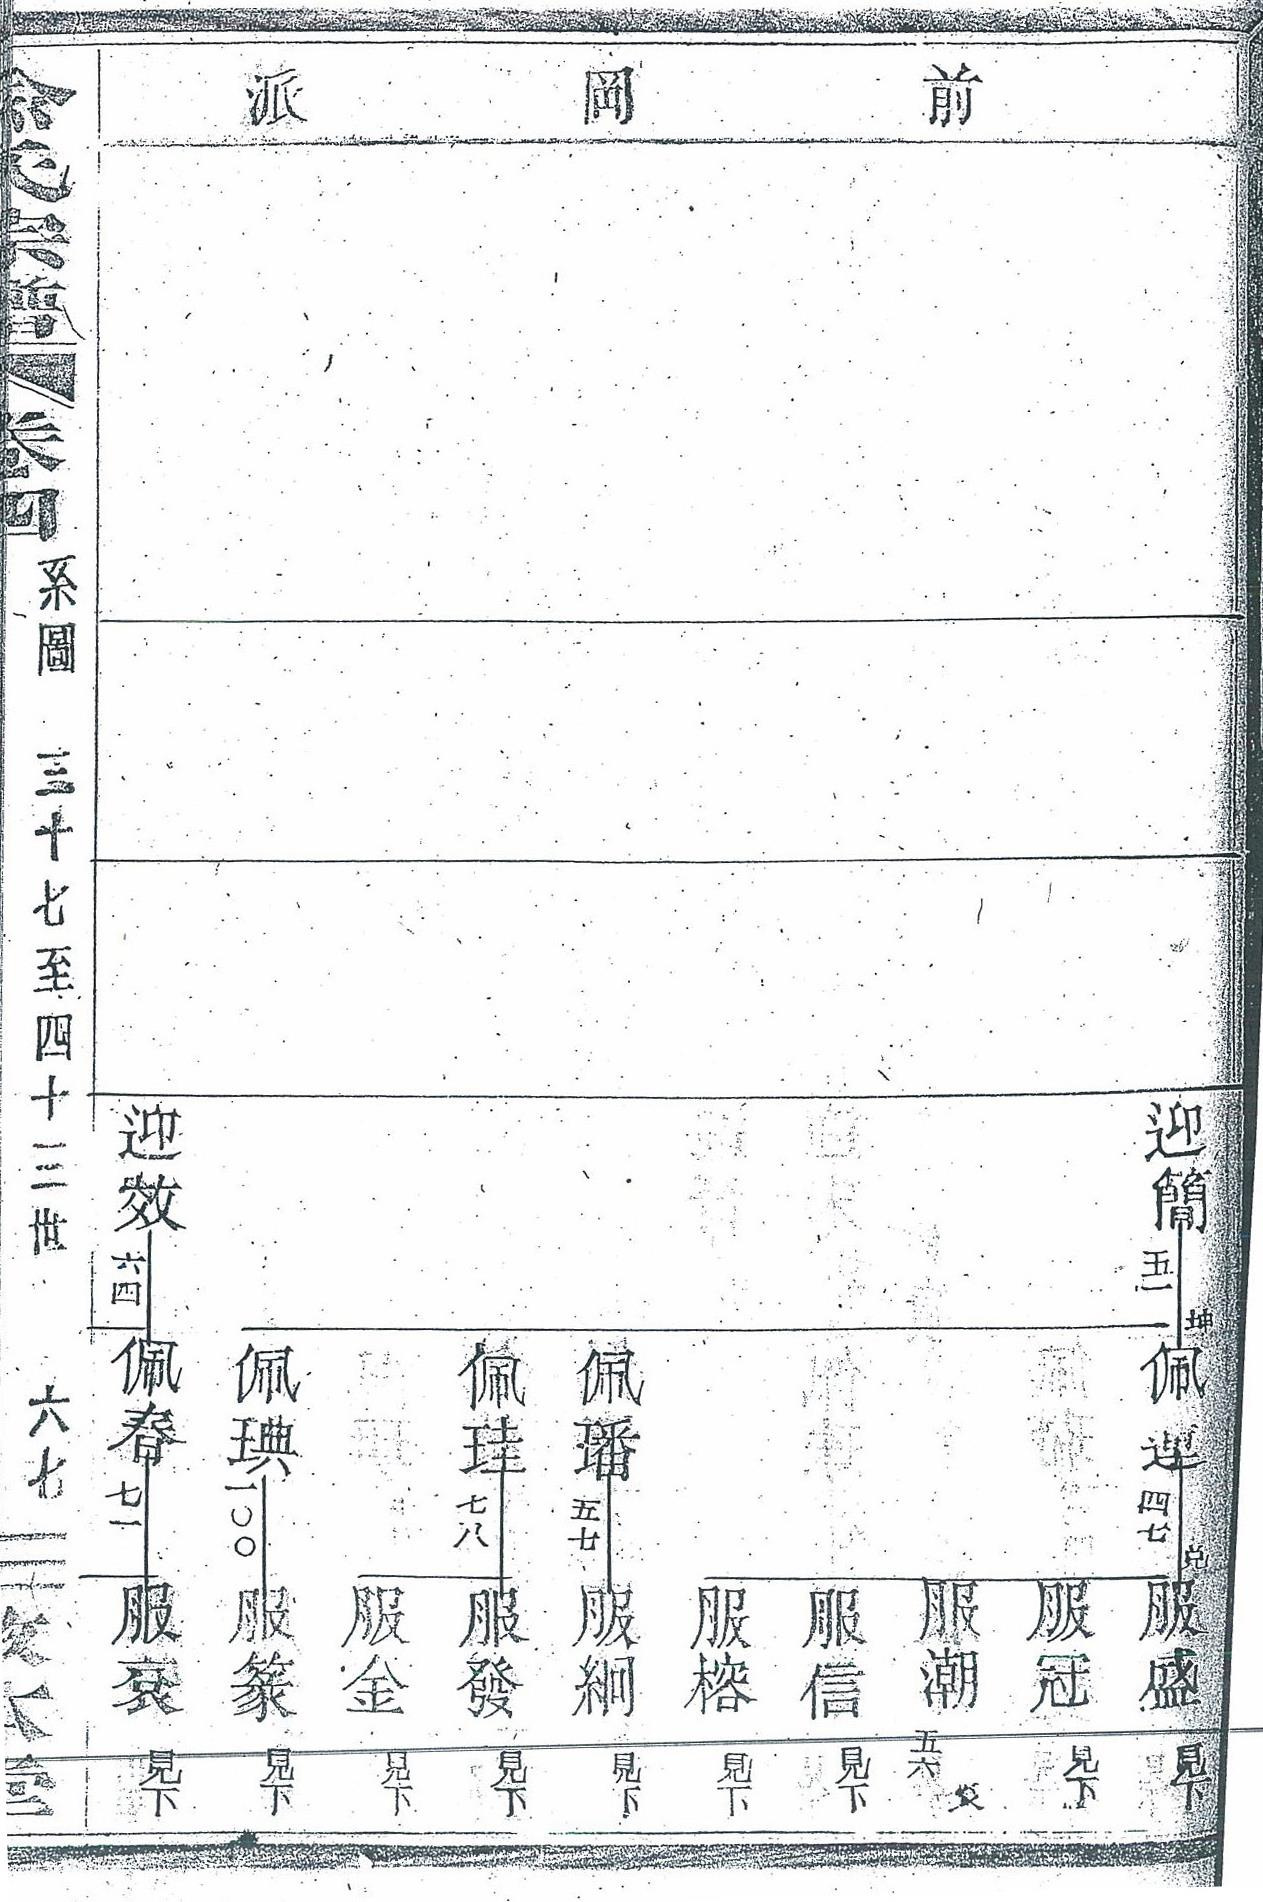 前岡派
迎簡
五一
坤
迎效
六四
佩
四七
兑
佩璠
五七
佩珪
七八
佩琠
一〇〇
佩春
七一
服盛
見下
服冠
見下
服潮
五六
服信
見下
服榕
見下
服絅
見下
服發
見下
服金
見下
服篆
見下
服袞
見下
卷四
系圖
三十七至四十三世
六七